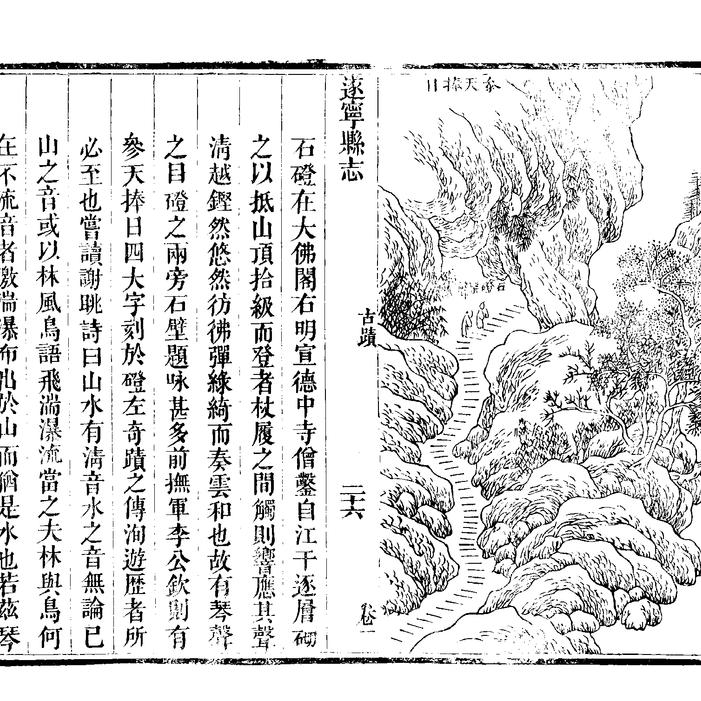 參天捧日
石磴琴聲
遂寧縣志
古蹟
二十六
卷一
石磴在大佛閣右明宣德中寺僧鑿自江干逐層砌
之以抵山頂拾級而登者杖履之間觸則響應其聲
清越鏗然悠然彷彿彈綠綺而奏雲和也故有琴聲
之目磴之兩旁石壁題咏甚多前撫軍李公欽則有
參天捧日四大字刻於磴左奇蹟之傳洵遊歷者所
必至也嘗讀謝眺詩曰山水有清音水之音無論已
山之音或以林風鳥語飛湍瀑流當之夫林與鳥何
在不流音者激湍瀑布出於山而猶是水也若茲琴